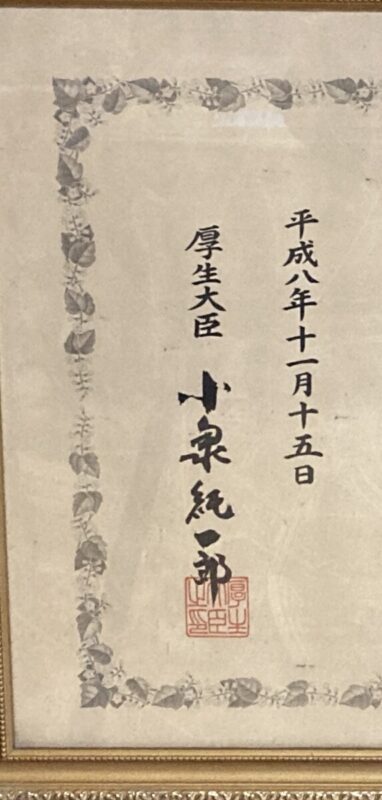 平成八年十一月十五日
厚生大臣 小泉純一郎
厚生大臣之印